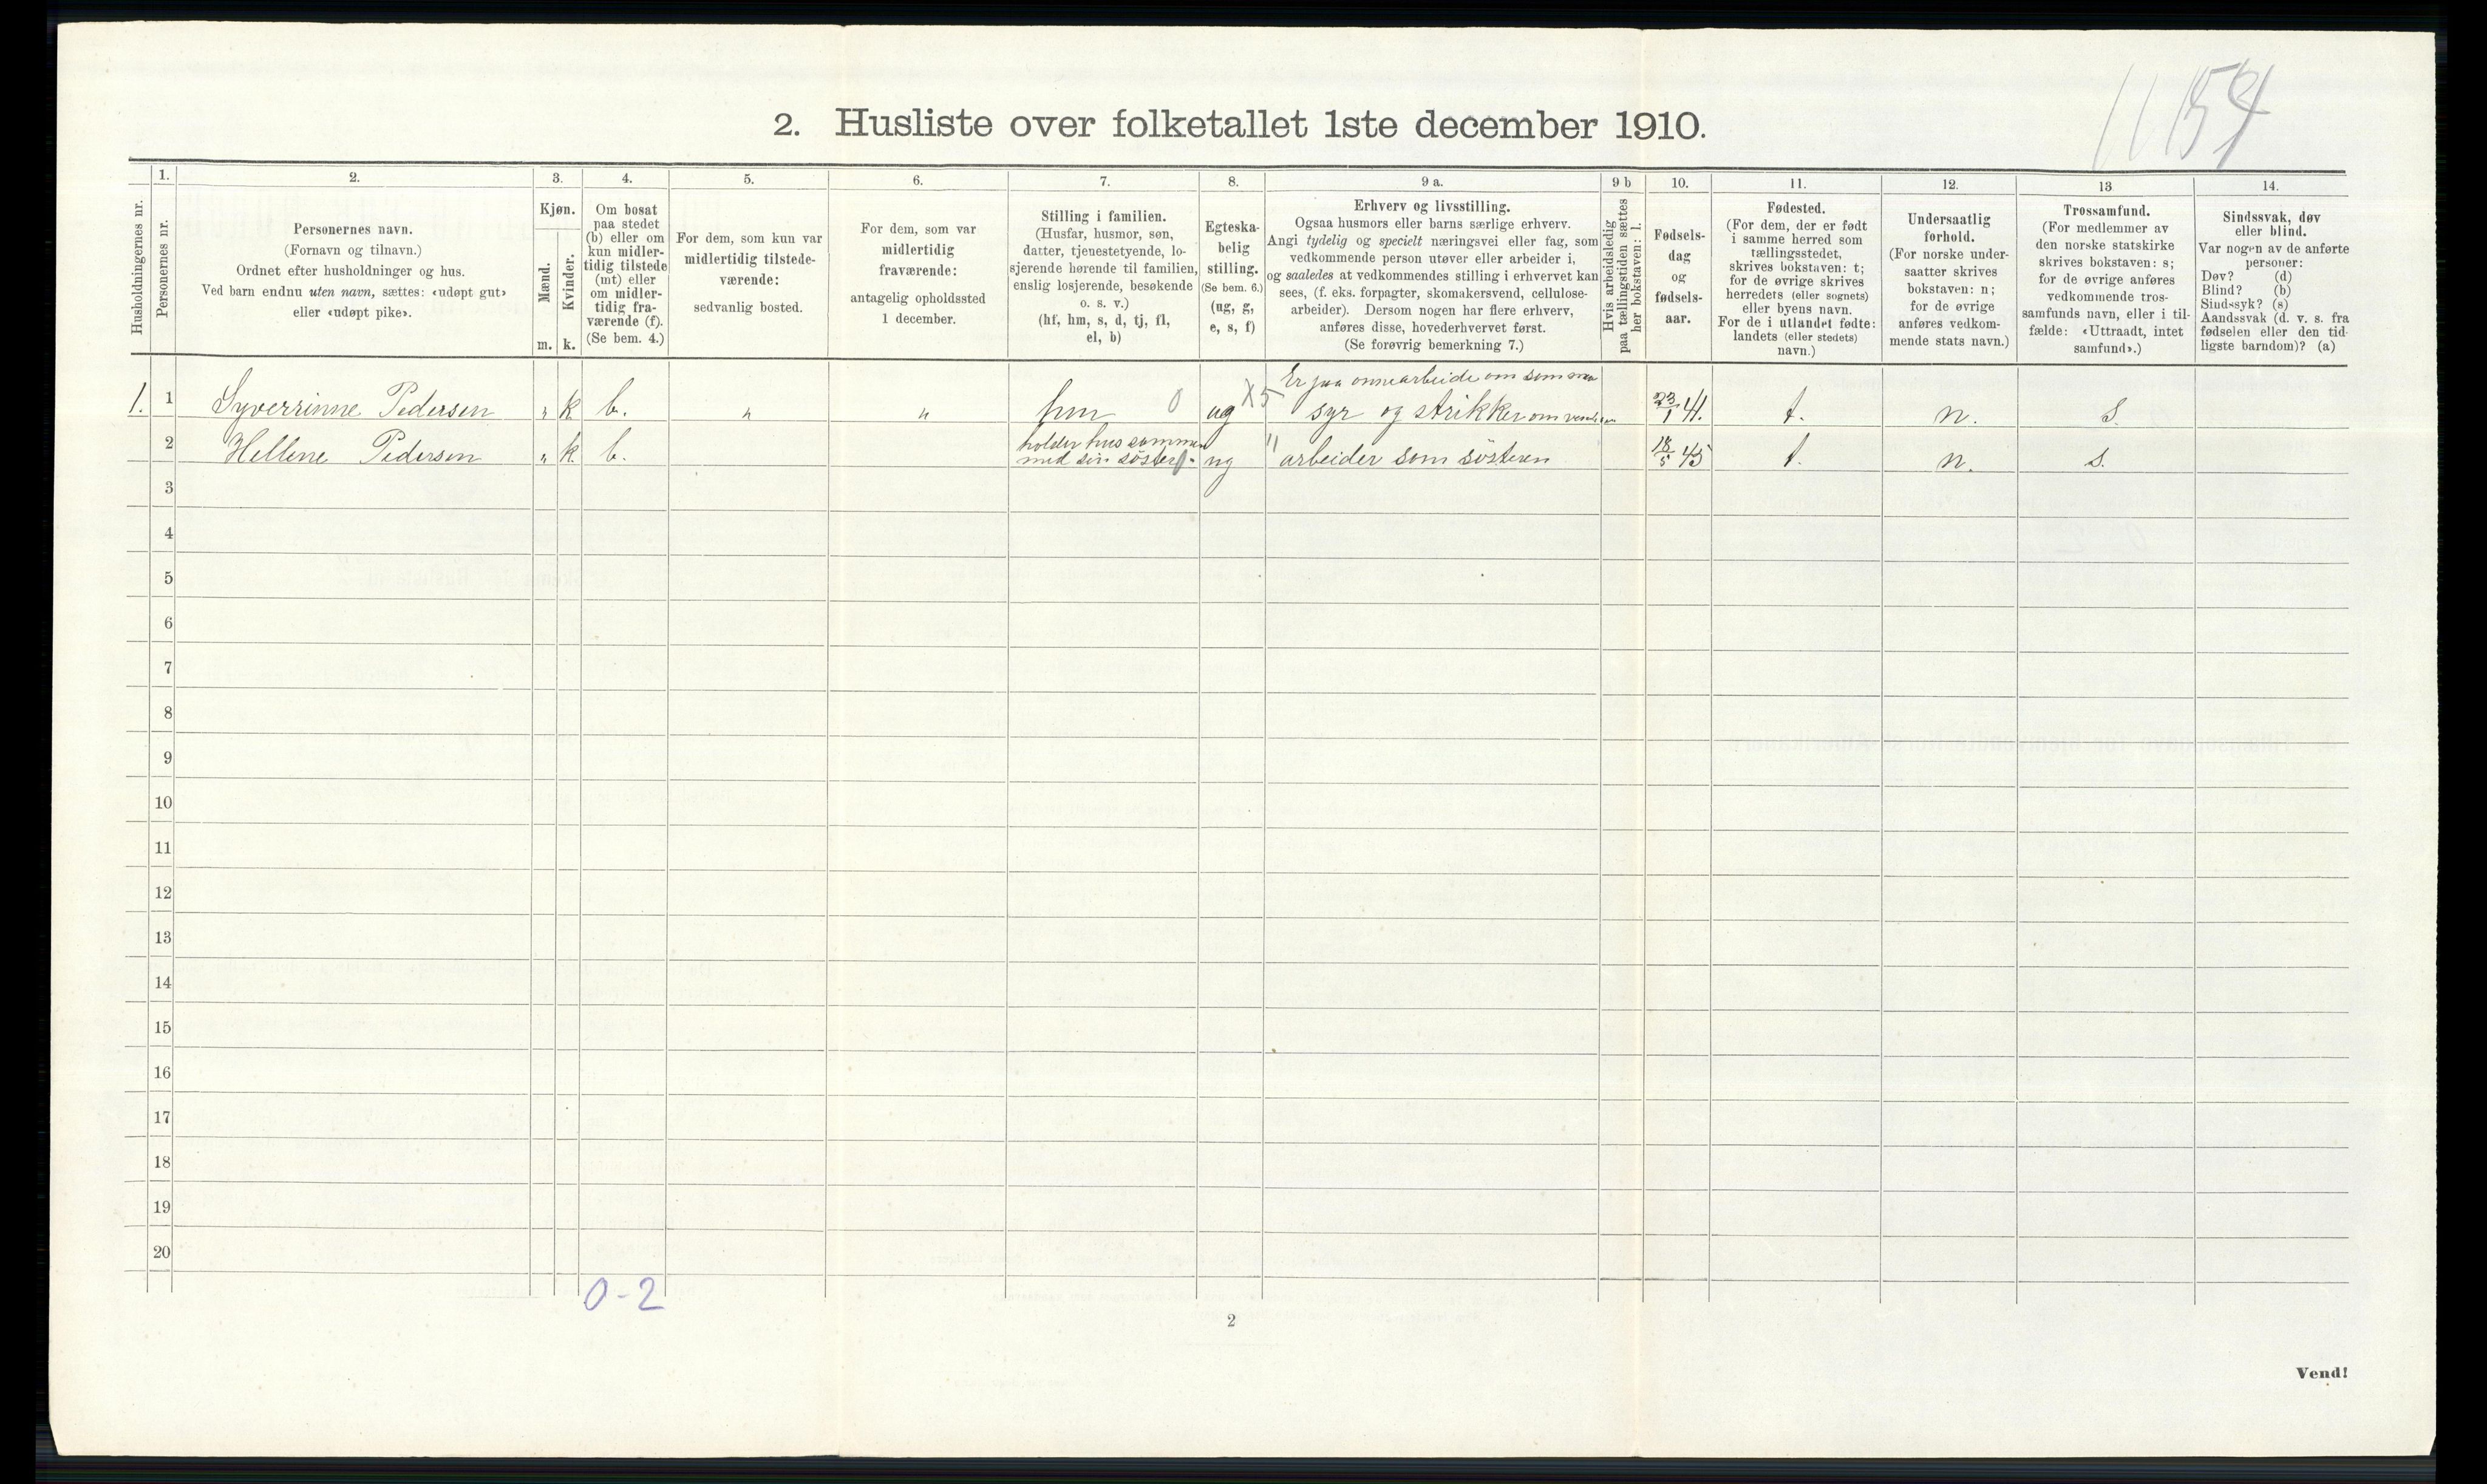 2. Husliste over folketallet 1ste december 1910.
1. 2. 3. 4. 5. 6. 7. 8. 9 a. 9 b 10. 11. 12. 13 14.
Husholdningernes nr.
Personernes nr.
Personernes navn.
(Fornavn og tilnavn.)
Ordnet efter husholdninger og hus.
Ved barn endnu uten navn, sættes: «udøpt gut»
eller «udøpt pike».
Kjøn.
Mænd.
Kvinder.
m. k.
Om bosat
paa stedet
(b) eller om
kun midler-
tidig tilstede
(mt) eller
om midler-
tidig fra-
værende (f).
(Se bem. 4.)
For dem, som kun var
midlertidig tilstede-
værende:
sedvanlig bosted.
For dem, som var
midlertidig
fraværende:
antagelig opholdssted
1 december.
Stilling i familien.
(Husfar, husmor, søn,
datter, tjenestetyende, lo-
sjerende hørende til familien,
enslig losjerende, besøkende
o. s. v.)
(hf, hm, s, d, tj, fl,
el, b)
Egteska-
belig
stilling.
(Se bem. 6.)
(ug, g,
e, s, f)
Erhverv og livsstilling.
Ogsaa husmors eller barns særlige erhverv.
Angi tydelig og specielt næringsvei eller fag, som
vedkommende person utøver eller arbeider i,
og saaledes at vedkommendes stilling i erhvervet kan
sees, (f. eks. forpagter, skomakersvend, cellulose-
arbeider). Dersom nogen har flere erhverv,
anføres disse, hovederhvervet først.
(Se forøvrig bemerkning 7.)
Hvis arbeidsledig
paa tællingstiden sættes
her bokstaven: l.
Fødsels-
dag
og
fødsels-
aar.
Fødested.
(For dem, der er født
i samme herred som
tællingsstedet,
skrives bokstaven: t;
for de øvrige skrives
herredets (eller sognets)
eller byens navn.
For de i utlandet fødte:
landets (eller stedets)
navn.)
Undersaatlig
forhold.
(For norske under-
saatter skrives
bokstaven: n;
for de øvrige
anføres vedkom-
mende stats navn.)
Trossamfund.
(For medlemmer av
den norske statskirke
skrives bokstaven: s;
for de øvrige anføres
vedkommende tros-
samfunds navn, eller i til-
fælde: «Uttraadt, intet
samfund».)
Sindssvak, døv
eller blind.
Var nogen av de anførte
personer:
Døv? (d)
Blind? (b)
Sindssyk? (s)
Aandssvak (d. v. s. fra
fødselen eller den tid-
ligste barndom)? (a)
Er paa onnearbeide om sommer
1. 1 Syverrinne Pedersen " k b. " " hm 0 ug X5 syr og strikker om 23/1 41. t. n. s.
holder hus sammen
2 Hellene Pedersen " k. b. med sin søster ug " arbeider som søsteren 18/5 45 t. n. s.
3
4
5
6
7
8
9
10
11
12
13
14
15
16
17
18
19
20
0-2
2
Vend!